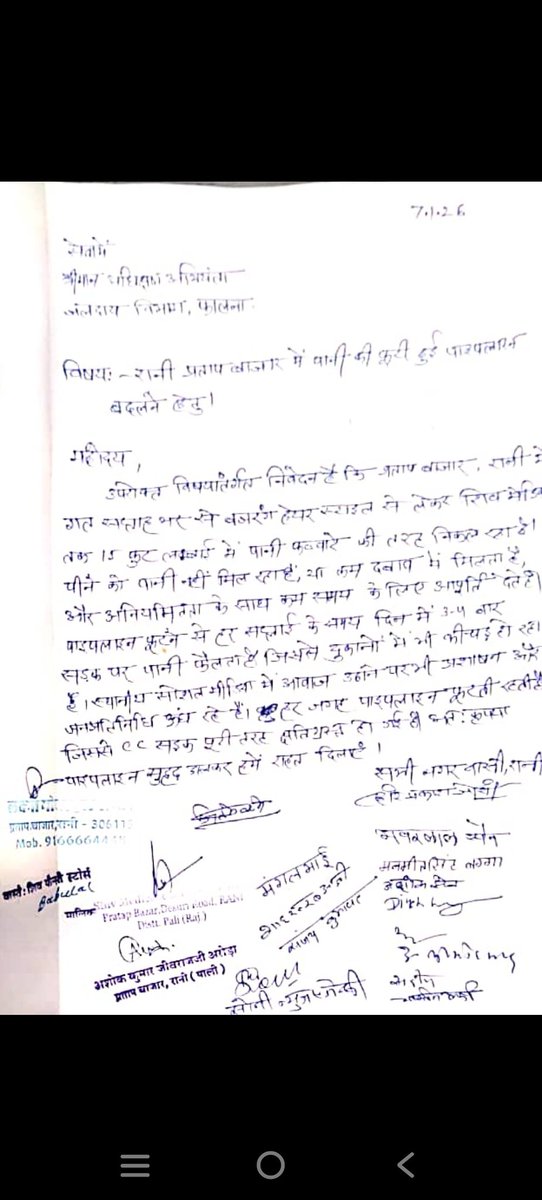 7.1.26
सेवामें
श्रीमान अधिक्षण अभियंता
जलदाय विभाग, फालना
विषय:- रानी प्रताप बाजार में पानी की फूटी हुई पाइपलाइन
बदलने हेतु।
महोदय,
उपरोक्त विषयांतर्गत निवेदन है कि प्रताप बाजार, रानी में
गत सप्ताह भर से बजरंग हेयर स्टाइल से लेकर शिव
तक 15 फुट लम्बाई में पानी फव्वारे की तरह निकल रहा है।
पीने को पानी नहीं मिल रहा है, या कम दबाव में मिलता है,
और अनियमितता के साथ कम समय के लिए आपूर्ति देते है।
पाइपलाइन फूटने से हर सप्लाई के समय दिन में 3-4 बार
सड़क पर पानी फैलता है जिससे दुकानों में भी कीचड़ हो रहा
है। स्थानीय सोशल मीडिया में आवाज उठाने पर भी प्रशासन और
जनप्रतिनिधि ऊंघ रहे है। हर जगह पाइपलाइन फूटती रहती है
जिससे CC सड़क पूरी तरह क्षतिग्रस्त हो गई है अत: कृपया
पाइपलाइन सुदृढ डालकर हमें राहत दिलाएं।
सभी नगर वासी, रानी
प्रताप बाजार, रानी - 30611
Mob. 9166664418
वास्ते: शिव फैन्सी स्टोर्स
Babulal
मालिक
Pratap Bazar, Deoom Road, RANI
Distt. Pali (Raj.)
मंगल भाई
अशोक कुमार जीवराजजी अरोड़ा
प्रताप बाजार, रानी (पाली)